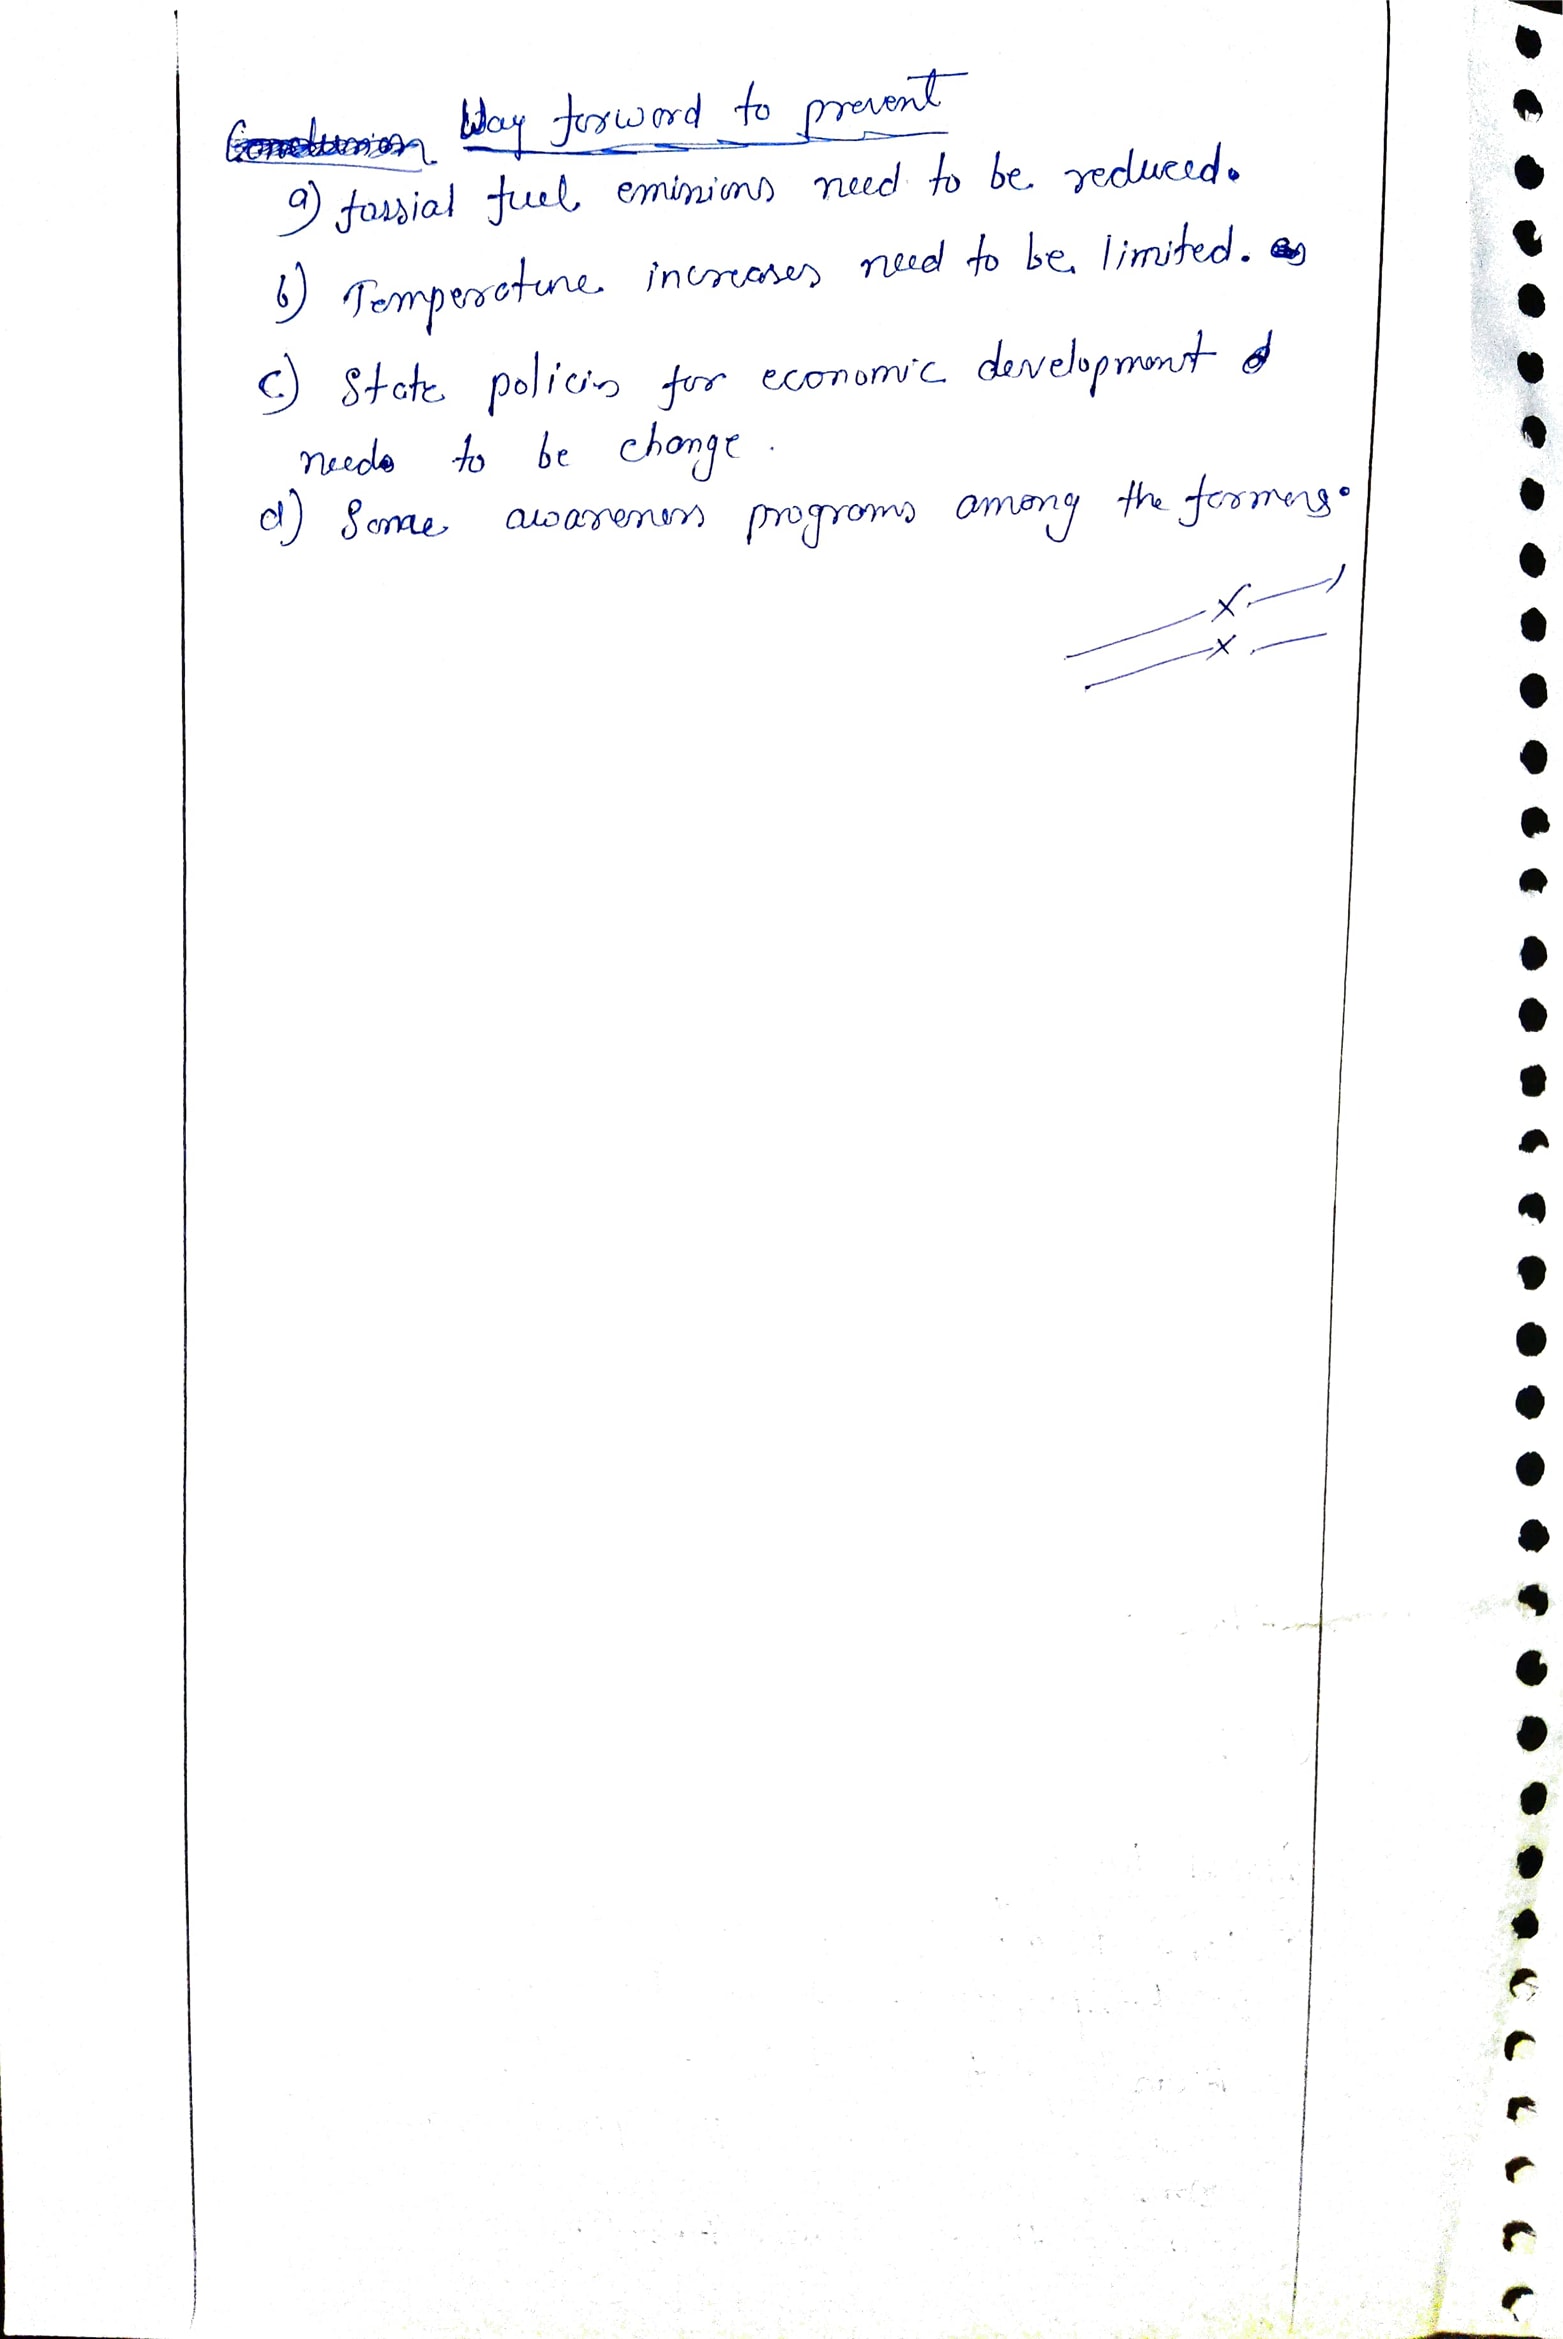 Conclusion Way forword to prevent
a) fossial fuel emissions need to be reduced.
b) Temperature increases need to be limited.
c) State policies for economic development
needs to be change.
d) Some awareness programs among the formers.
x
x